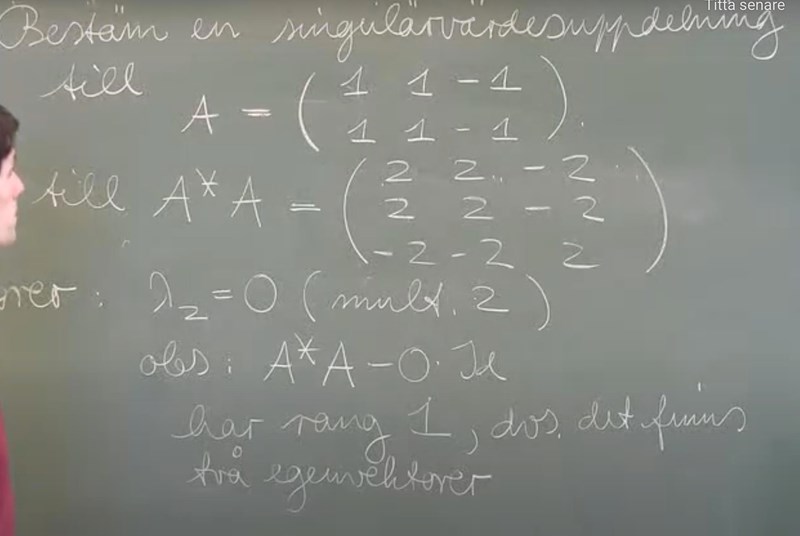 Titta senare
Bestäm en singulärvärdesuppdelning
till
A = ( 1 1 -1
1 1 -1 ).
till A*A = ( 2 2 -2
2 2 -2
-2 -2 2 )
över: λ₂ = 0 (mult. 2)
obs: A*A - 0· Id
har rang 1, dvs. det finns
två egenvektorer